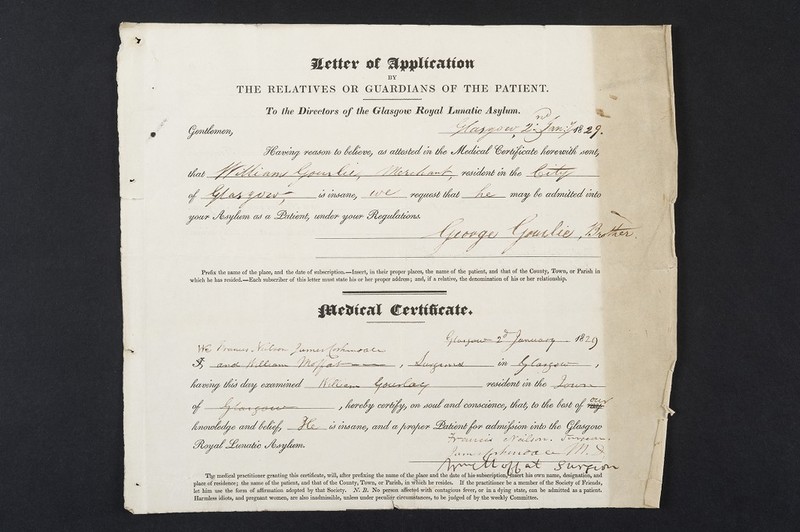 Letter of Application
BY
THE RELATIVES OR GUARDIANS OF THE PATIENT.
To the Directors of the Glasgow Royal Lunatic Asylum.
Gentlemen, Glasgow, 2nd Jany 1829.
Having reason to believe, as attested in the Medical Certificate herewith sent,
that William Gourlie, Merchant, resident in the City
of Glasgow is insane, we request that he may be admitted into
your Asylum as a Patient, under your Regulations.
George Gourlie, Brother
Prefix the name of the place, and the date of subscription.—Insert, in their proper places, the name of the patient, and that of the County, Town, or Parish in
which he has resided.—Each subscriber of this letter must state his or her proper address; and, if a relative, the denomination of his or her relationship.
Medical Certificate.
Glasgow 2d January 1829
We Francis Neilson, James
I, and William Moffat, Surgeons in Glasgow,
having this day examined William Gourlay resident in the Town
of Glasgow, hereby certify, on soul and conscience, that, to the best of my our
knowledge and belief, He is insane, and a proper Patient for admission into the Glasgow
Royal Lunatic Asylum.
Francis Neilson. Surgeon.
M.D
Wm Moffat Surgeon
The medical practitioner granting this certificate, will, after prefixing the name of the place and the date of his subscription, insert his own name, designation, and
place of residence; the name of the patient, and that of the County, Town, or Parish, in which he resides. If the practitioner be a member of the Society of Friends,
let him use the form of affirmation adopted by that Society. N. B. No person affected with contagious fever, or in a dying state, can be admitted as a patient.
Harmless idiots, and pregnant women, are also inadmissible, unless under peculiar circumstances, to be judged of by the weekly Committee.